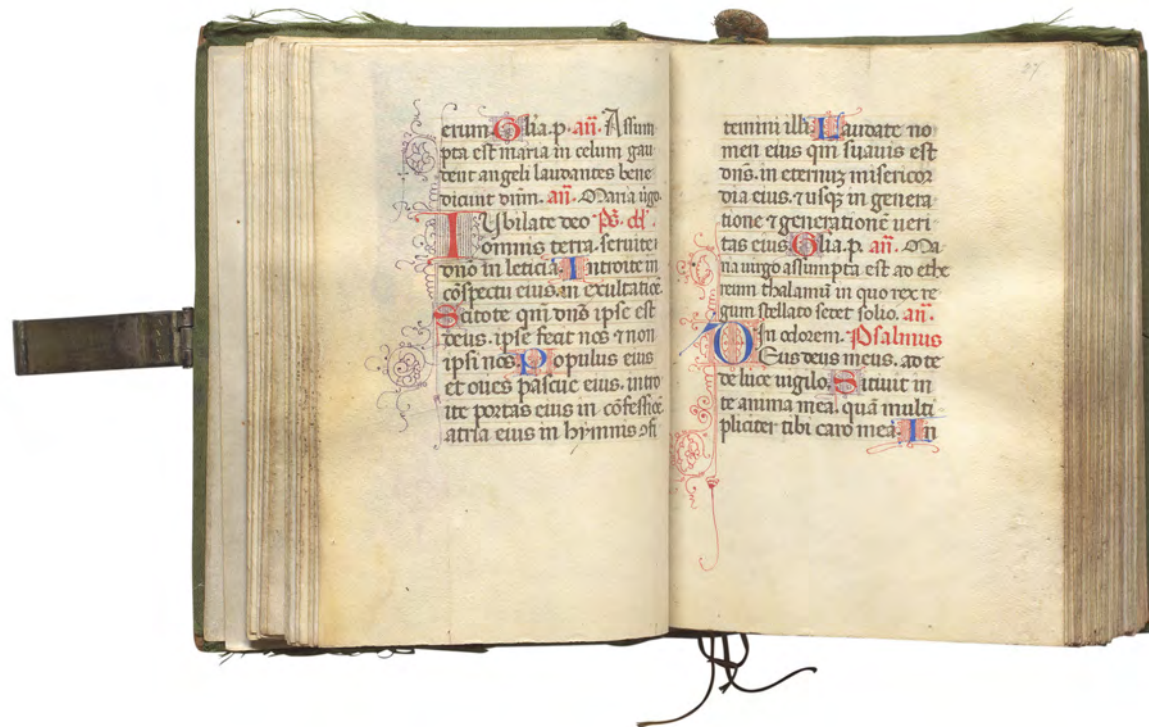 erum. Gl'ia. p. añ. Assum
pta est maria in celum gau
dent angeli laudantes bene
dicunt dñm. añ. Maria ũgo.
IUbilate deo Ps. dd'.
omnis terra. seruite
dño in leticia. Introite in
cõspectu eius. in exultatiõe.
Scitote qm̃ dñs ipse est
deus. ipse fecit nos ⁊ non
ipsi nos. Populus eius
et oues pascue eius. intro
ite portas eius in cõfessiõe.
atria eius in hymnis cõfi
27
temini illi. Laudate no
men eius qm̃ suauis est
dñs. in eternuʒ misericor
dia eius. ⁊ usqʒ in genera
tione ⁊ generationẽ ueri
tas eius. Gl'ia. p. añ. Ma
ria uirgo assumpta est ad ethe
reum thalamũ in quo rex re
gum stellato sedet solio. añ.
In odorem. Psalmus
DEus deus meus. ad te
de luce uigilo. Sitiuit in
te anima mea. quã multi
pliciter tibi caro mea. In